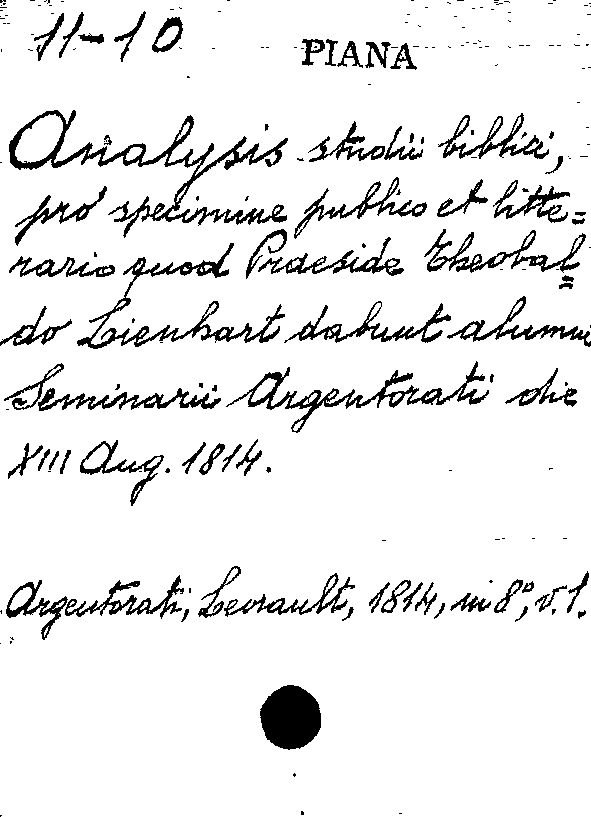 11-10
PIANA
Analysis studii biblici,
pro specimine publico et litte=
rario quod Praeside Theobal=
do Lienhart dabunt alumni
Seminarii Argentorati die
XIII Aug. 1814.
Argentorati, Levrault, 1814, in 8°, v. 1.